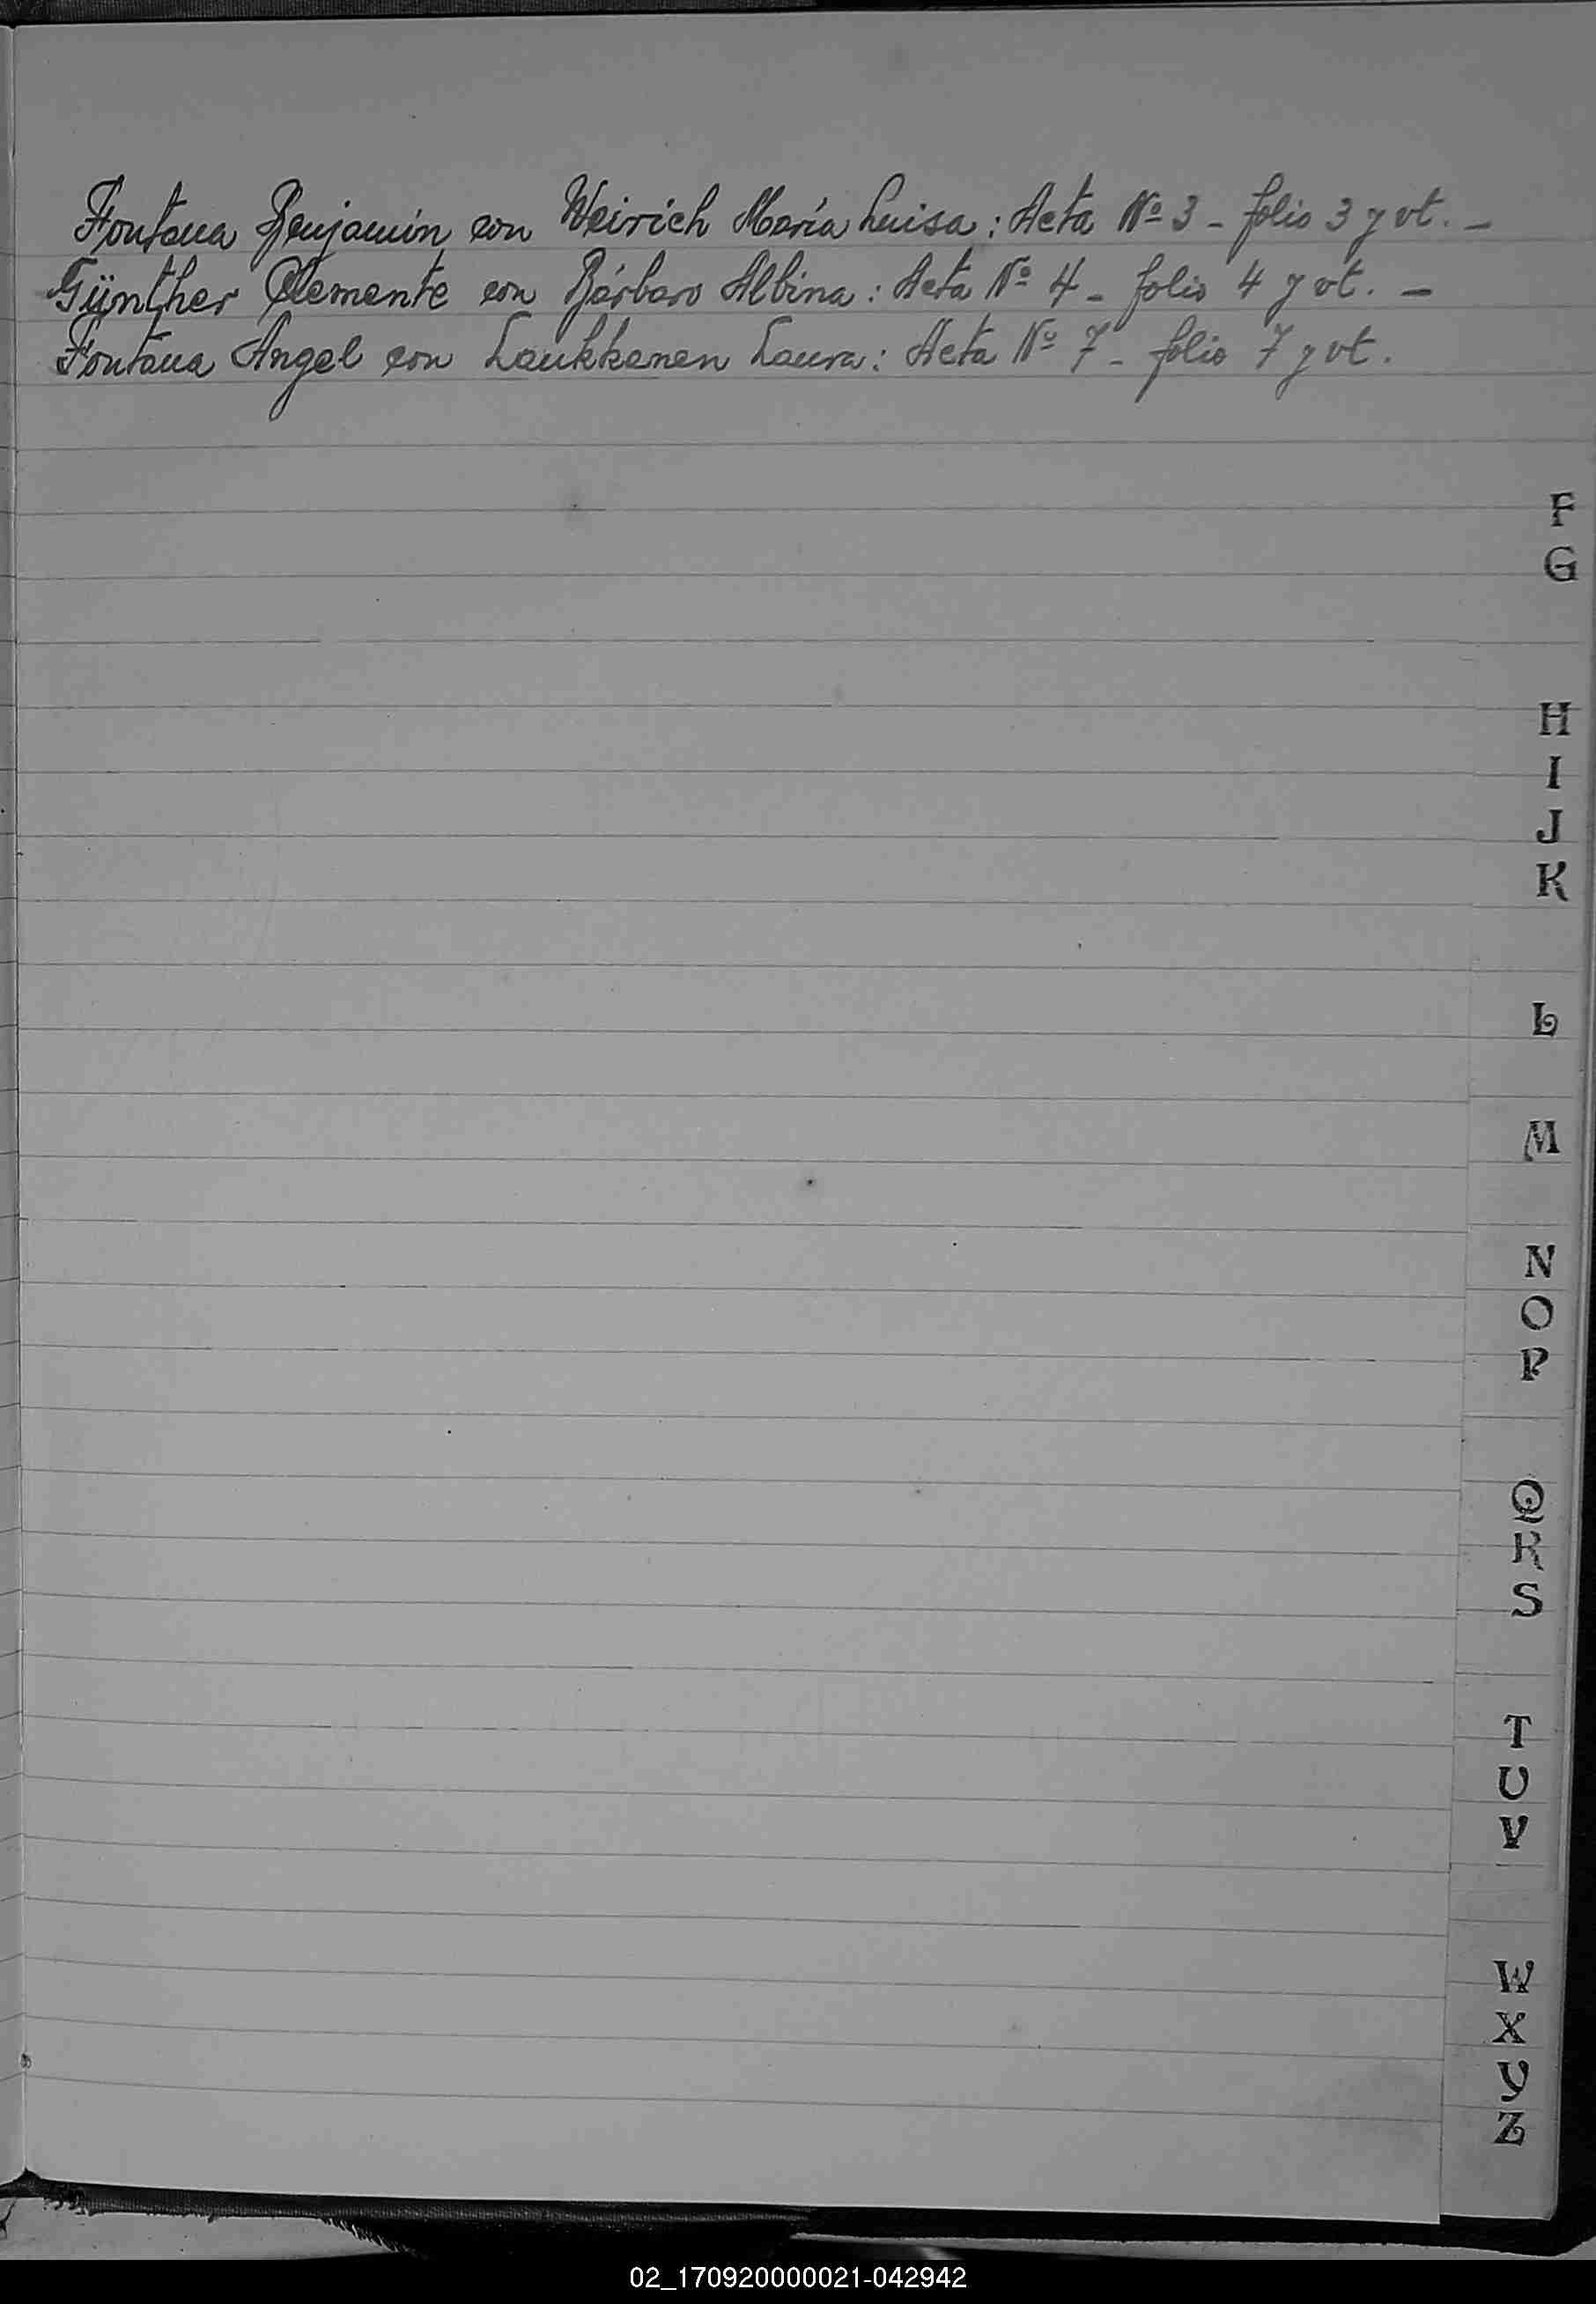 Fontana Benjamín con Weirich María Luisa: Acta Nº 3 - folio 3 y vt. -
Günther Clemente con Bárbaro Albina: Acta Nº 4 - folio 4 y vt. -
Fontana Angel con Laukkanen Laura: Acta Nº 7 - folio 7 y vt.
F
G
H
I
J
K
L
M
N
O
P
Q
R
S
T
U
V
W
X
Y
Z
02_170920000021-042942